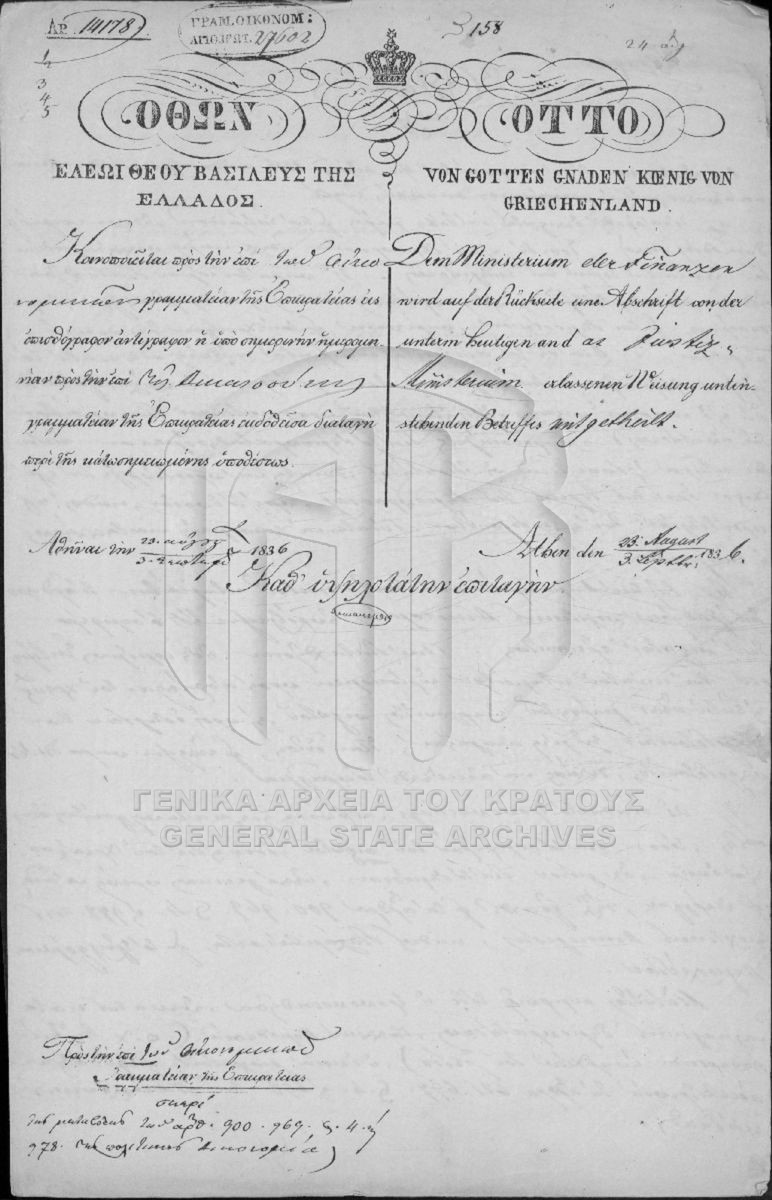 Αρ. 14178
ΓΡΑΜ. ΟΙΚΟΝΟΜ:
ΑΠΟ. ΠΡΩΤ. 27602
158
24
1/2
3
4
5
ΟΘΩΝ
ΕΛΕΩΙ ΘΕΟΥ ΒΑΣΙΛΕΥΣ ΤΗΣ
ΕΛΛΑΔΟΣ.
Κοινοποιεῖται πρὸς τὴν ἐπὶ τῶν Οἰκο
νομικῶν γραμματείαν τῆς Ἐπικρατείας εἰς
ὀπισθόγραφον ἀντίγραφον ἡ ὑπὸ σημερινὴν ἡμερομη-
νίαν πρὸς τὴν ἐπὶ τῆς Δικαιοσύνης
γραμματείαν τῆς Ἐπικρατείας ἐκδοθεῖσα διαταγὴ
περὶ τῆς κάτω σημειωμένης ὑποθέσεως.
OTTO
VON GOTTES GNADEN KŒNIG VON
GRIECHENLAND.
Dem Ministerium der Finanzen
wird auf der Rückseite eine Abschrift von der
unterm heutigen and as Justiz-
Ministerium erlassenen Weisung unten-
stehenden Betreffes mitgetheilt.
Ἀθῆναι τὴν 23. Αὐγούστ. / 3. Σεπτεμβ. 1836
Athen den 23. August / 3. Septbr. 1836.
Καθ' ὑψηλοτάτην ἐπιταγήν.
ΓΕΝΙΚΑ ΑΡΧΕΙΑ ΤΟΥ ΚΡΑΤΟΥΣ
GENERAL STATE ARCHIVES
Πρὸς τὴν ἐπὶ τῶν Οἰκονομικῶν
Γραμματείαν τῆς Ἐπικρατείας
περὶ
τῆς μεταθέσεως τῶν ἄρθ. 900. 969. 4.
978. τῆς πολιτικῆς Δικονομίας